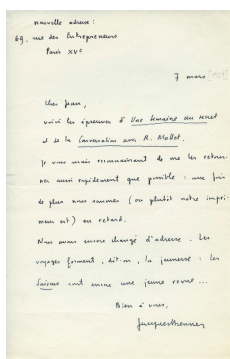 nouvelle adresse :
69, rue des Entrepreneurs
Paris XVe
7 mars
Cher Jean,
voici les épreuves d'Une semaine au secret
et de la Conversation avec R. Mallet.
Je vous serais reconnaissant de me les retour-
ner aussi rapidement que possible : une fois
de plus nous sommes (ou plutôt notre impri-
meur est) en retard.
Nous avons encore changé d'adresse. Les
voyages forment, dit-on, la jeunesse : les
Saisons sont encore une jeune revue...
Bien à vous,
Jacques Brenner